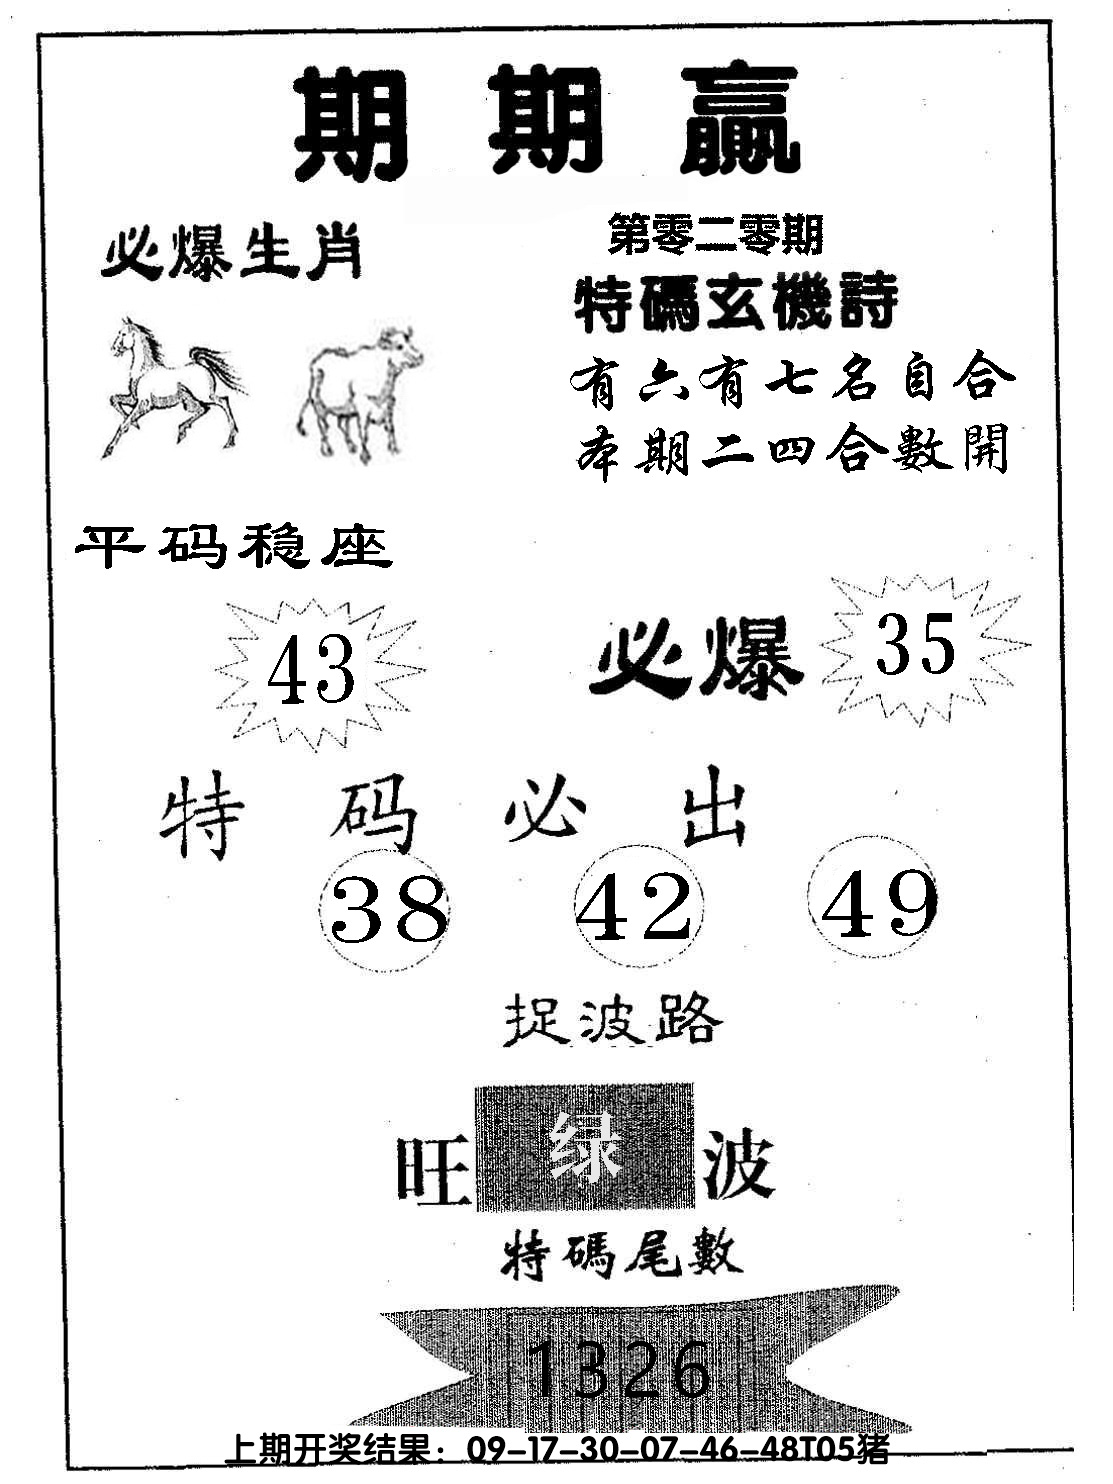 期期贏
必爆生肖
第零二零期
特碼玄機詩
有六有七名自合
本期二四合數開
平码稳座
43
必爆 35
特码必出
38 42 49
捉波路
旺 绿 波
特碼尾數
1326
上期开奖结果：09-17-30-07-46-48T05猪